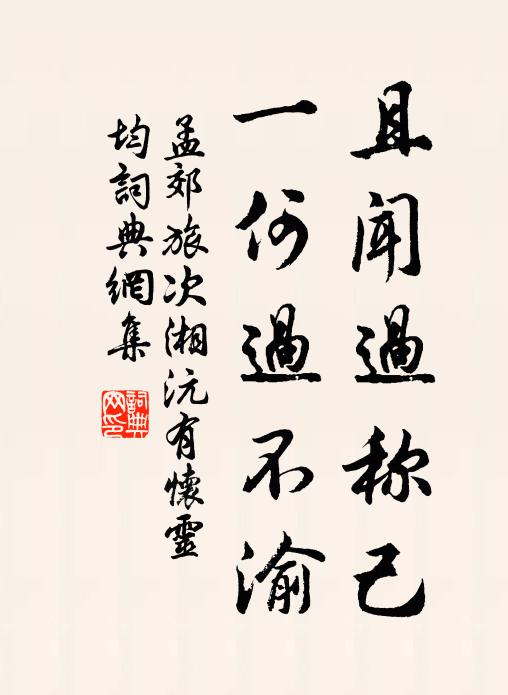 且闻過称己
一何過不渝
孟郊旅次湘沅有懷靈
均詞典網集
詞典
网印